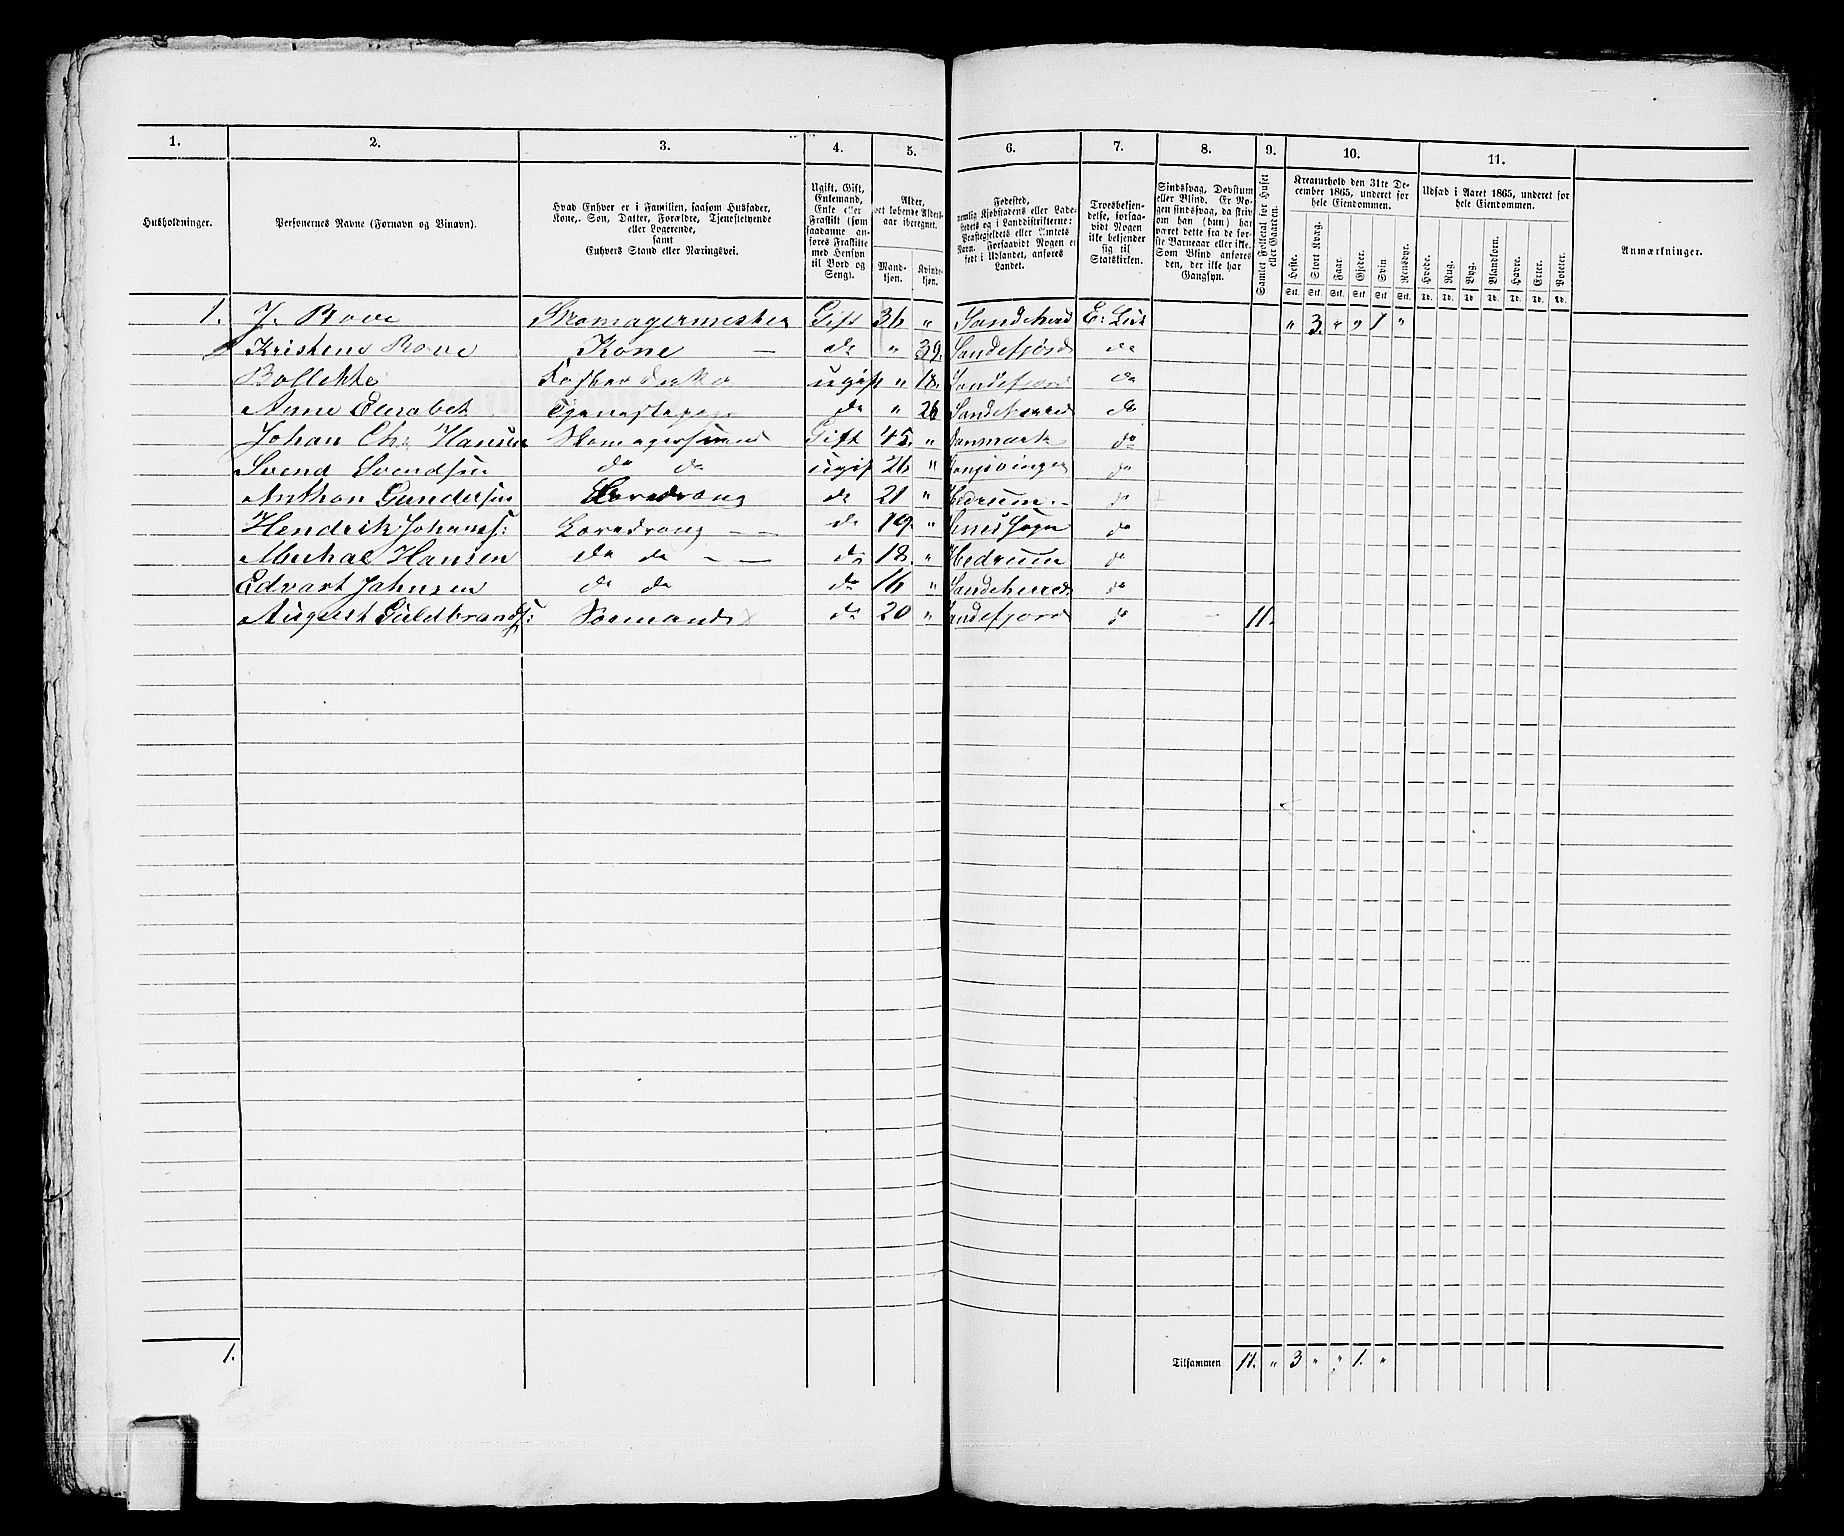 1. 2. 3. 4. 5. 6. 7. 8. 9. 10. 11.
Husholdninger.
Personernes Navne (Fornavn og Binavn).
Hvad Enhver er i Familien, saasom Husfader,
Kone, Søn, Datter, Forældre, Tjenestetyende
eller Logerende,
samt
Enhvers Stand eller Næringsvei.
Ugift, Gift,
Enkemand,
Enke eller
Fraskilt (som
saadanne an-
føres Fraskilte
med Hensyn
til Bord og
Seng).
Alder,
det løbende Alders-
aar iberegnet.
Mand-
kjøn.
Kvinde-
kjøn.
Fødested,
nemlig Kjøbstadens eller Lade-
stedets og i Landdistrikterne:
Præstegjeldets eller Amtets
Navn. Forsaavidt Nogen er
født i Udlandet, anføres
Landet.
Troesbekjen-
delse, forsaa-
vidt Nogen
ikke bekjender
sig til
Statskirken.
Sindssvag, Døvstum
eller Blind. Er No-
gen sindssvag, da skriv
om han (hun) har
været dette fra de før-
ste Barneaar eller ikke.
Som Blind anføres
den, der ikke har
Gangsyn.
Samlet Folketal for Huset
eller Gaarden.
Kreaturhold den 31te De-
cember 1865, underet for
hele Eiendommen.
Heste. Stort Kvæg. Faar. Gjeder. Svin. Rensdyr.
Stk. Stk. Stk. Stk. Stk. Stk.
Udsæd i Aaret 1865, underet for
hele Eiendommen.
Hvede. Rug. Byg. Blandkorn. Havre. Erter. Poteter.
Td. Td. Td. Td. Td. Td. Td.
Anmærkninger.
1. J. Rove Skomagermester Gift 36 " Sandeherd E. Lut " 3. " " 1 "
Kristene Rove Kone — do " 39. Sandefjord do
Bollette ugift " 18. Sandefjord do
Anne Elisabet do " 26 Sandeherred do
Johan Chr Hansen Skomagersvend Gift 45. " Danmark do
Svend Svendsen do do ugif 26. " Kongsvinger do
Anthon Gundersen Læredreng do 21 " Hedrum do
Hendrik Johanns: Læredreng — do 19. " do
Michal Hansen do do — do 18. " Hedrum do
Edvart Jahnsen do do do 16 " Sandeherred do
August Guldbrands: Sømand do 20 " Sandefjord do 11.
1. Tilsammen 11. " 3 " " 1. "